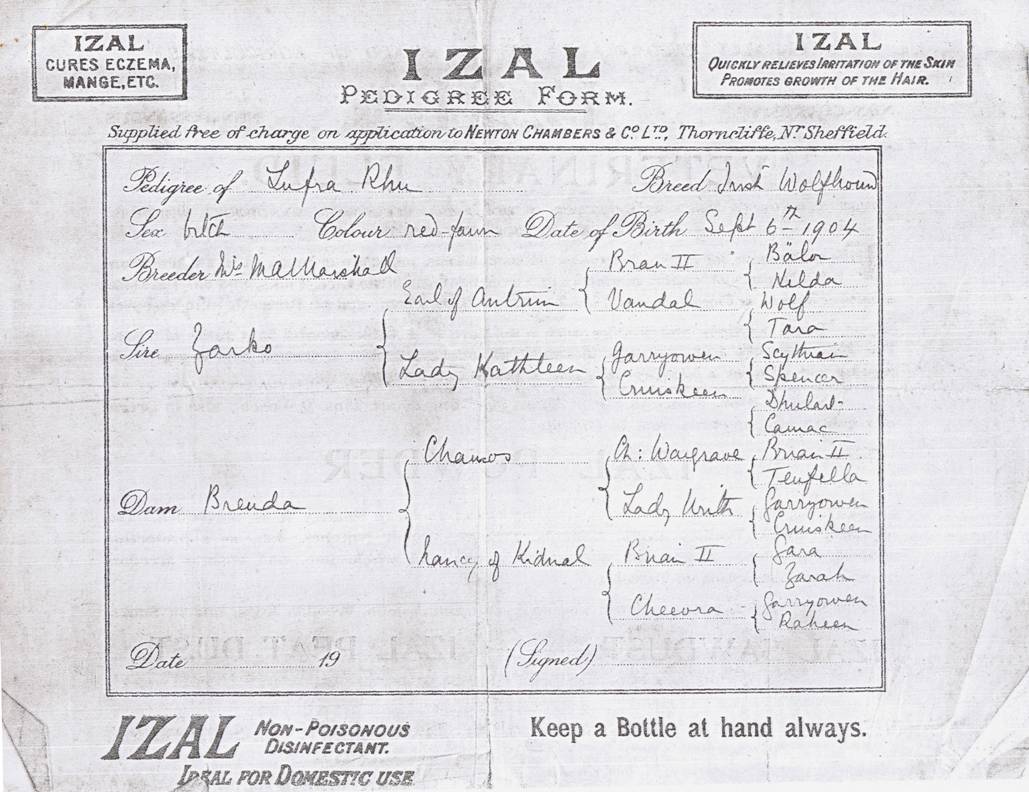 IZAL
CURES ECZEMA,
MANGE, ETC.
IZAL
PEDIGREE FORM.
IZAL
QUICKLY RELIEVES IRRITATION OF THE SKIN
PROMOTES GROWTH OF THE HAIR.
Supplied free of charge on application to NEWTON CHAMBERS & Co. LTD., Thorncliffe, Nr. Sheffield.
Pedigree of Lufra Rhu Breed Irish Wolfhound
Sex bitch Colour red-fawn Date of Birth Sept 6th 1904
Breeder Mrs Marshall
Sire Zarko
Earl of Antrim
Lady Kathleen
Bran II
Vandal
Garryowen
Cruiskeen
Bälor
Hilda
Wolf
Tara
Scythian
Spencer
Dhulart
Camac
Dam Brenda
Chamos
Nancy of Kidnal
Ch: Wargrave
Lady Urith
Brian II
Cheevra
Brian II
Teufella
Garryowen
Cruiskeen
Gara
Zarah
Garryowen
Raheen
Date 19 (Signed)
IZAL NON-POISONOUS
DISINFECTANT.
IDEAL FOR DOMESTIC USE
Keep a Bottle at hand always.